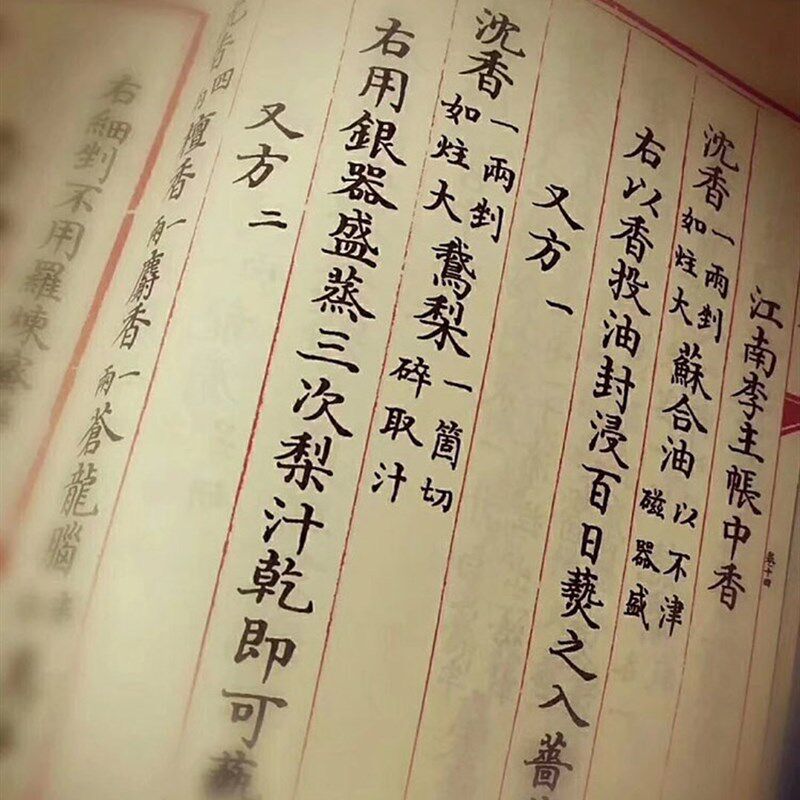 江南李主帳中香
沈香一兩剉如炷大蘇合油以不津磁器盛
右以香投油封浸百日爇之入薔
又方一
沈香一兩剉如炷大鵝梨一箇切碎取汁
右用銀器盛蒸三次梨汁乾即可爇
又方二
香四兩檀香一兩麝香一兩蒼龍腦
右細剉不用羅煉
卷十四